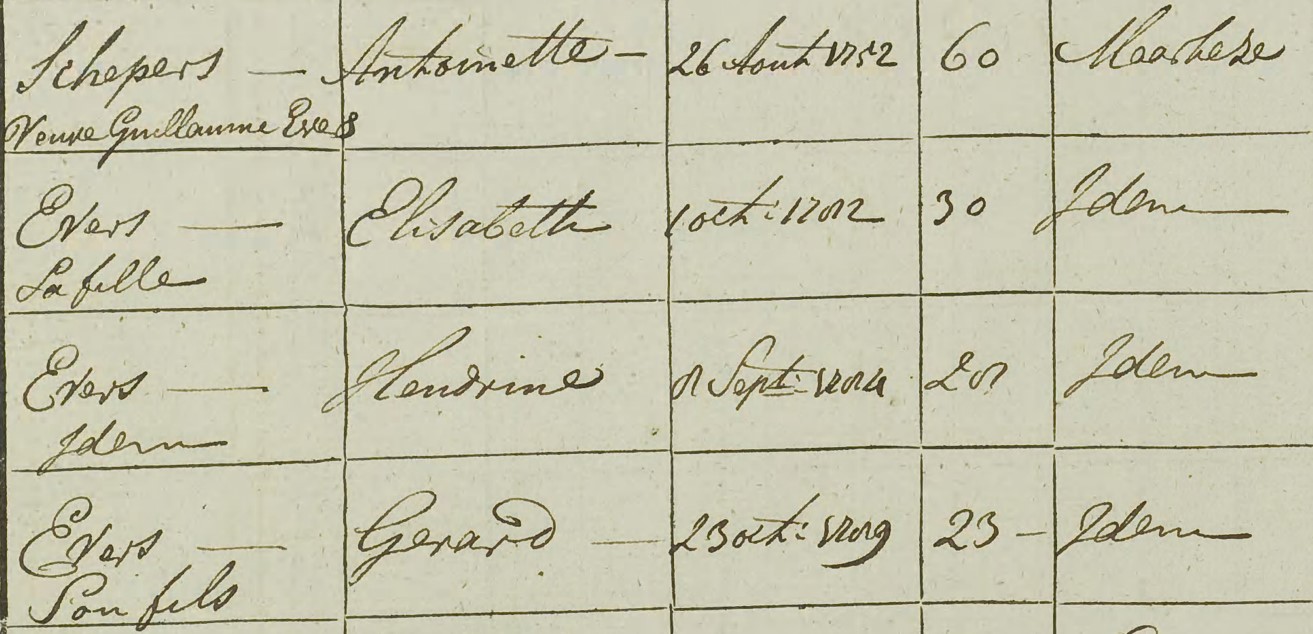 Schepers — Antoinette — 26 Aout 1752 60 Maarheze
Veuve Guillaume Evers
Evers — Elisabeth 1 oct: 1782 30 Idem
Sa fille
Evers — Hendrine 8 Sept: 1784 28 Idem
Idem
Evers — Gerard — 23 oct: 1789 23 — Idem
Son fils